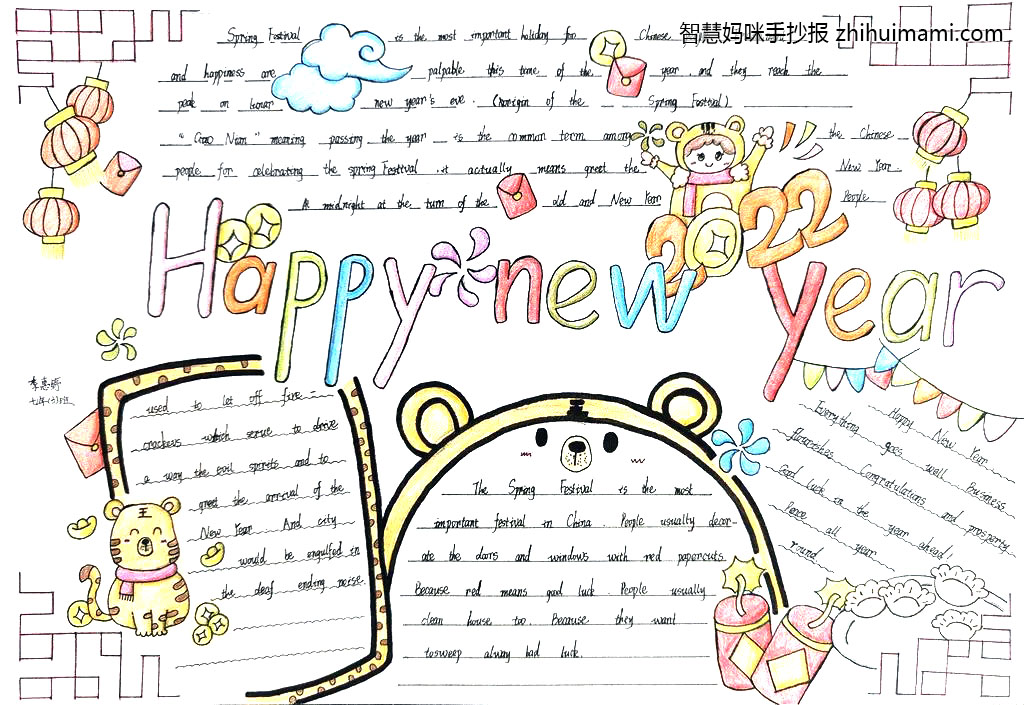 智慧妈咪手抄报 zhihuimami.com
Spring Festival is the most important holiday for Chinese
and happiness are palpable this time of the year . and they reach the
peak on lunar new year's eve . (horigin of the Spring Festival)
"Guo Nian" meaning passing the year . is the common term among the Chinese
people for celebrating the spring Festival .it actually means greet the New Year .
At midnight at the turn of the old and New Year People
Happy new year
2022
used to let off fire
crackers which serue to drive
a way the evil spirits and to
greet the arrival of the
New Year And city
would be engulfed in
the deaf ending noise.
The Spring Festival is the most
important festival in China . People usually decor-
ate the doors and windows with red papercuts.
Because red means good luck . People usually
clean house too. Because they want
tosweep alway bad luck.
Happy New Year
Everything goes well Business
flourishes Congratulations and prosperity
Good luck in the year ahead!
Peace all year
round